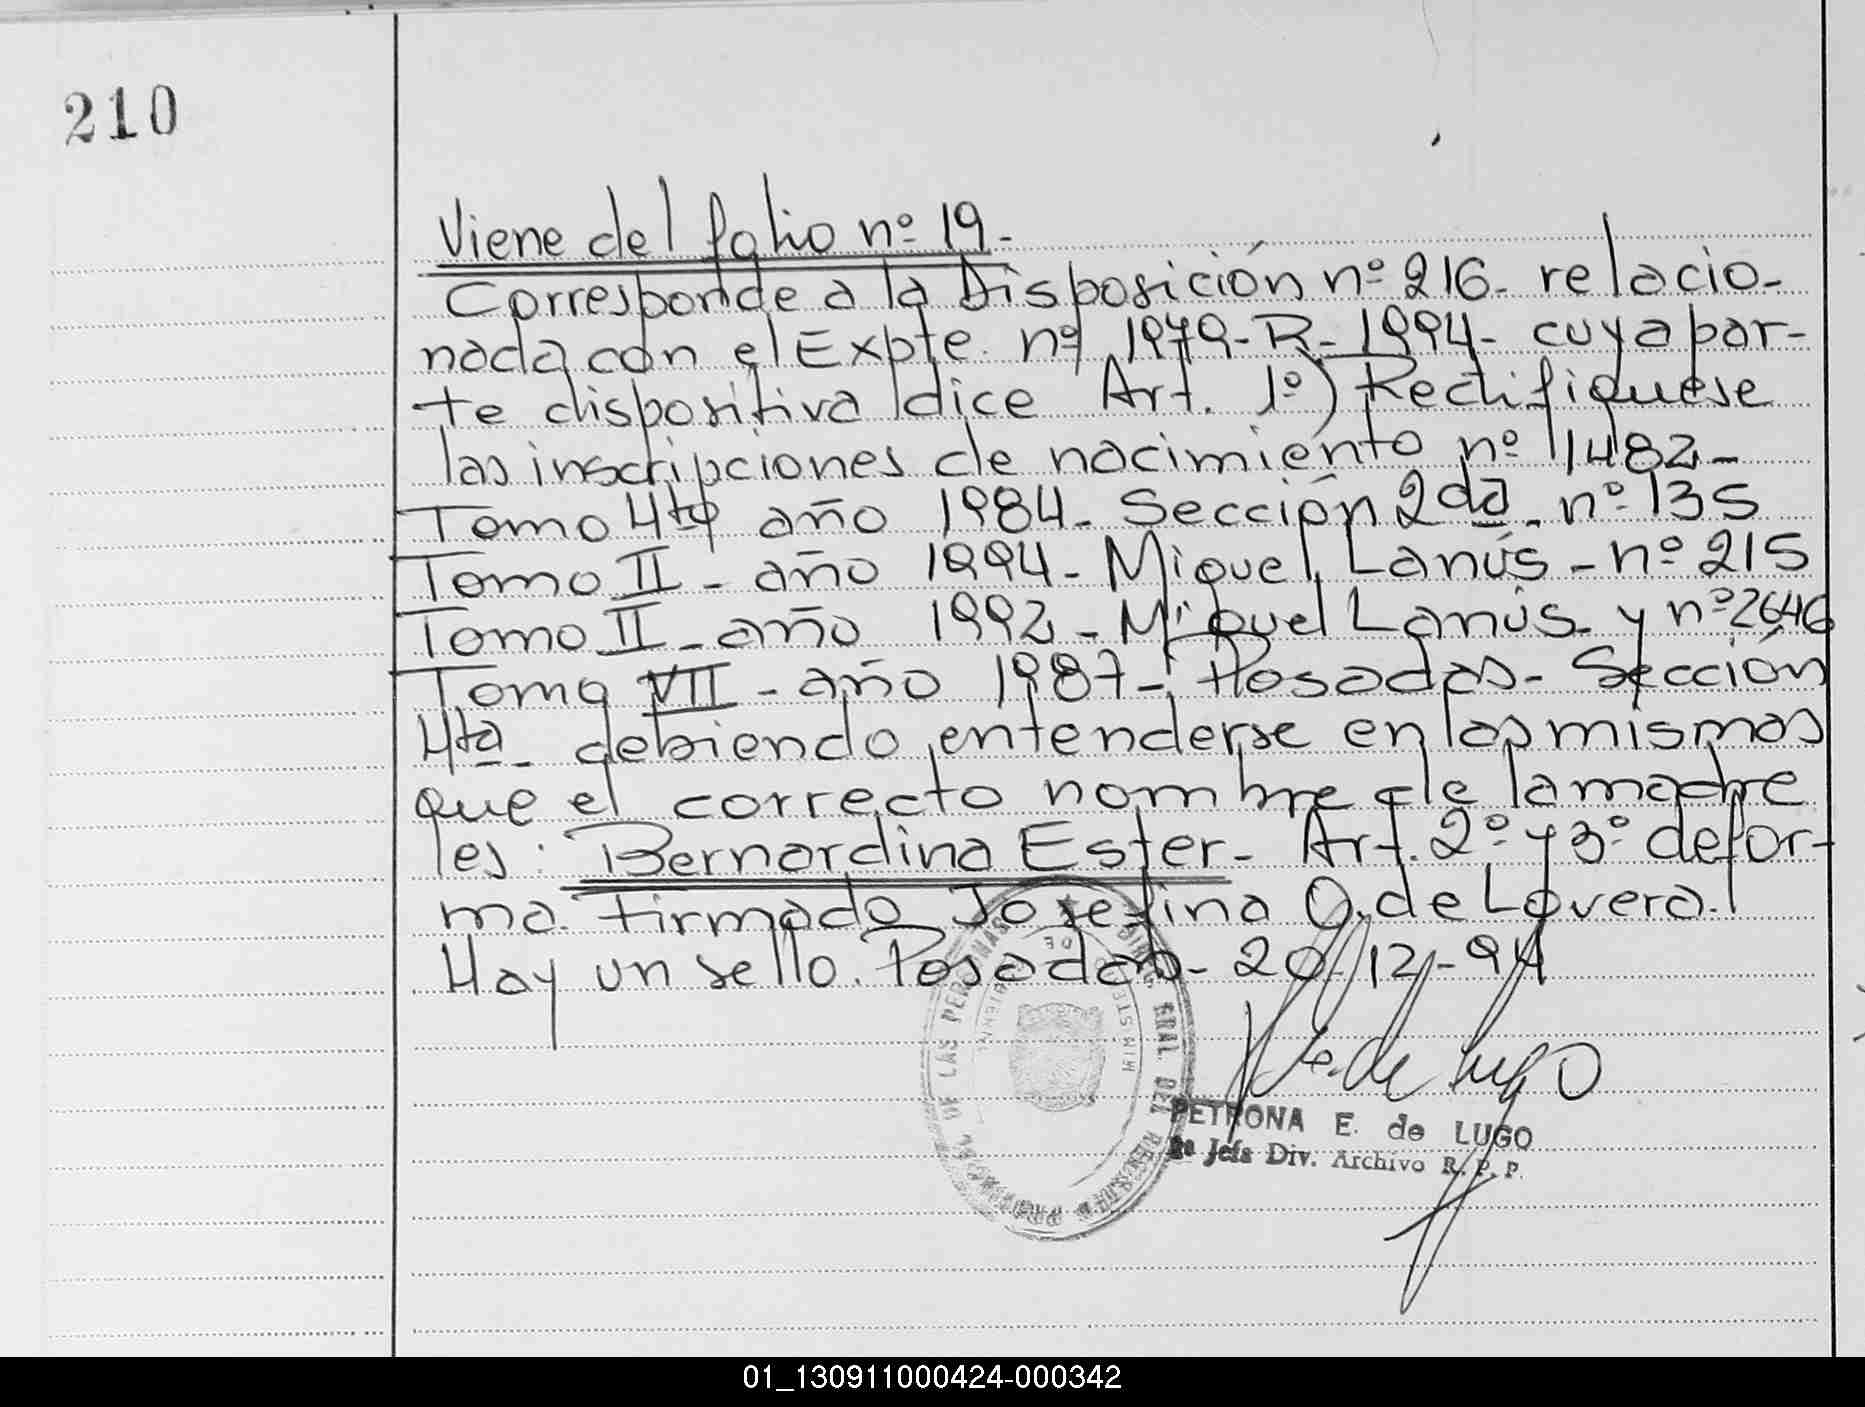 210
Viene del folio nº 19.-
Corresponde a la Disposición nº 216- relacio-
nada con el Expte. nº 1979-R-1994- cuya par-
te dispositiva dice Art. 1º) Rectifiquese
las inscripciones de nacimiento nº 1482-
Tomo 4to año 1984- Sección 2da- nº 135
Tomo II - año 1994- Miguel Lanús - nº 215
Tomo II - año 1992 - Miguel Lanús- y nº 2646
Tomo VII - año 1987- Posadas- Sección
4ta- debiendo entenderse en las mismas
que el correcto nombre de la madre
es: Bernardina Ester- Art. 2º y 3º de for-
ma. Firmado Josefina O. de Lovera.
Hay un sello. Posadas- 20/12-94
E. de Lugo
PETRONA E. de LUGO
2a Jefa Div. Archivo R. P. P.
DIRE. GRAL. DEL REGISTRO PROVINCIAL DE LAS PERSONAS
MINISTERIO DE GOBIERNO
01_130911000424-000342